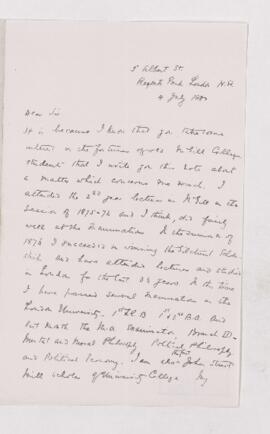 5 Albert St.
Regents Park London N.W.
4 July 1880
Dear Sir
It is because I know that you take some
interest in the fortunes of old McGill College
students that I write you this note about
a matter which concerns me much. I
attended the 2nd year lectures in McGill in the
session of 1875-76 and I think, did fairly
well at the Examinations. In the summer of
1876 I succeeded in winning the Gilchrist Schol-
ship and have attended lectures and studied
in London for the last 3½ years. In the time
I have passed several Examinations in the
London University. 1st B.A. and
last month the M.A. Examination Branch III.
Mental and Moral Philosophy Political Philosophy
and Political Economy. I am also the John Stuart
Mill scholar of University College My